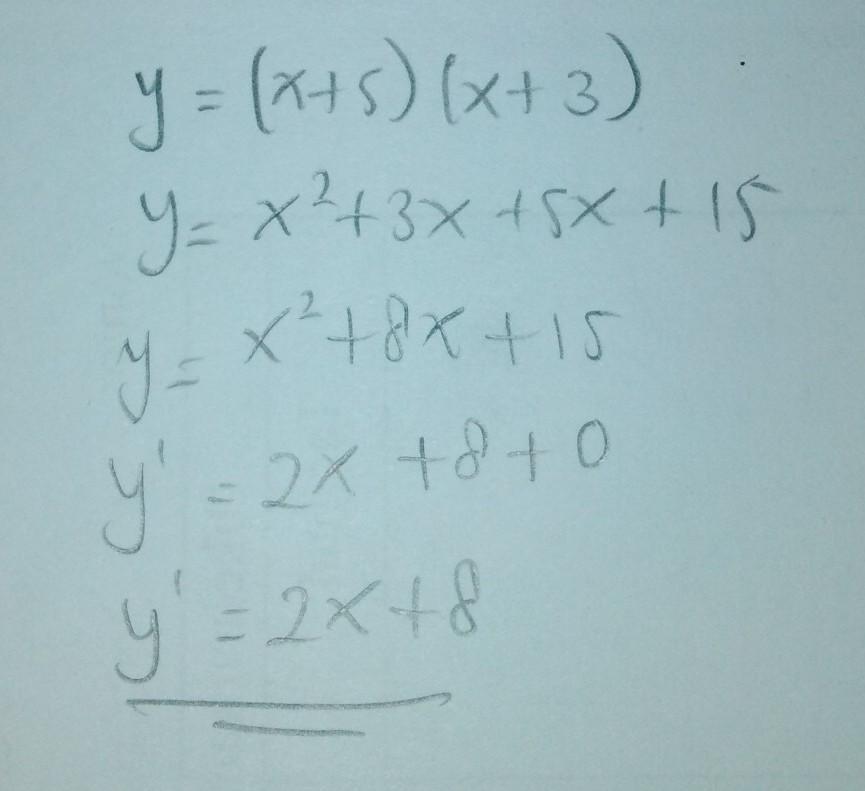 y = (x+5) (x+3)
y = x²+3x+5x+15
y = x²+8x+15
y' = 2x+8+0
y' = 2x+8